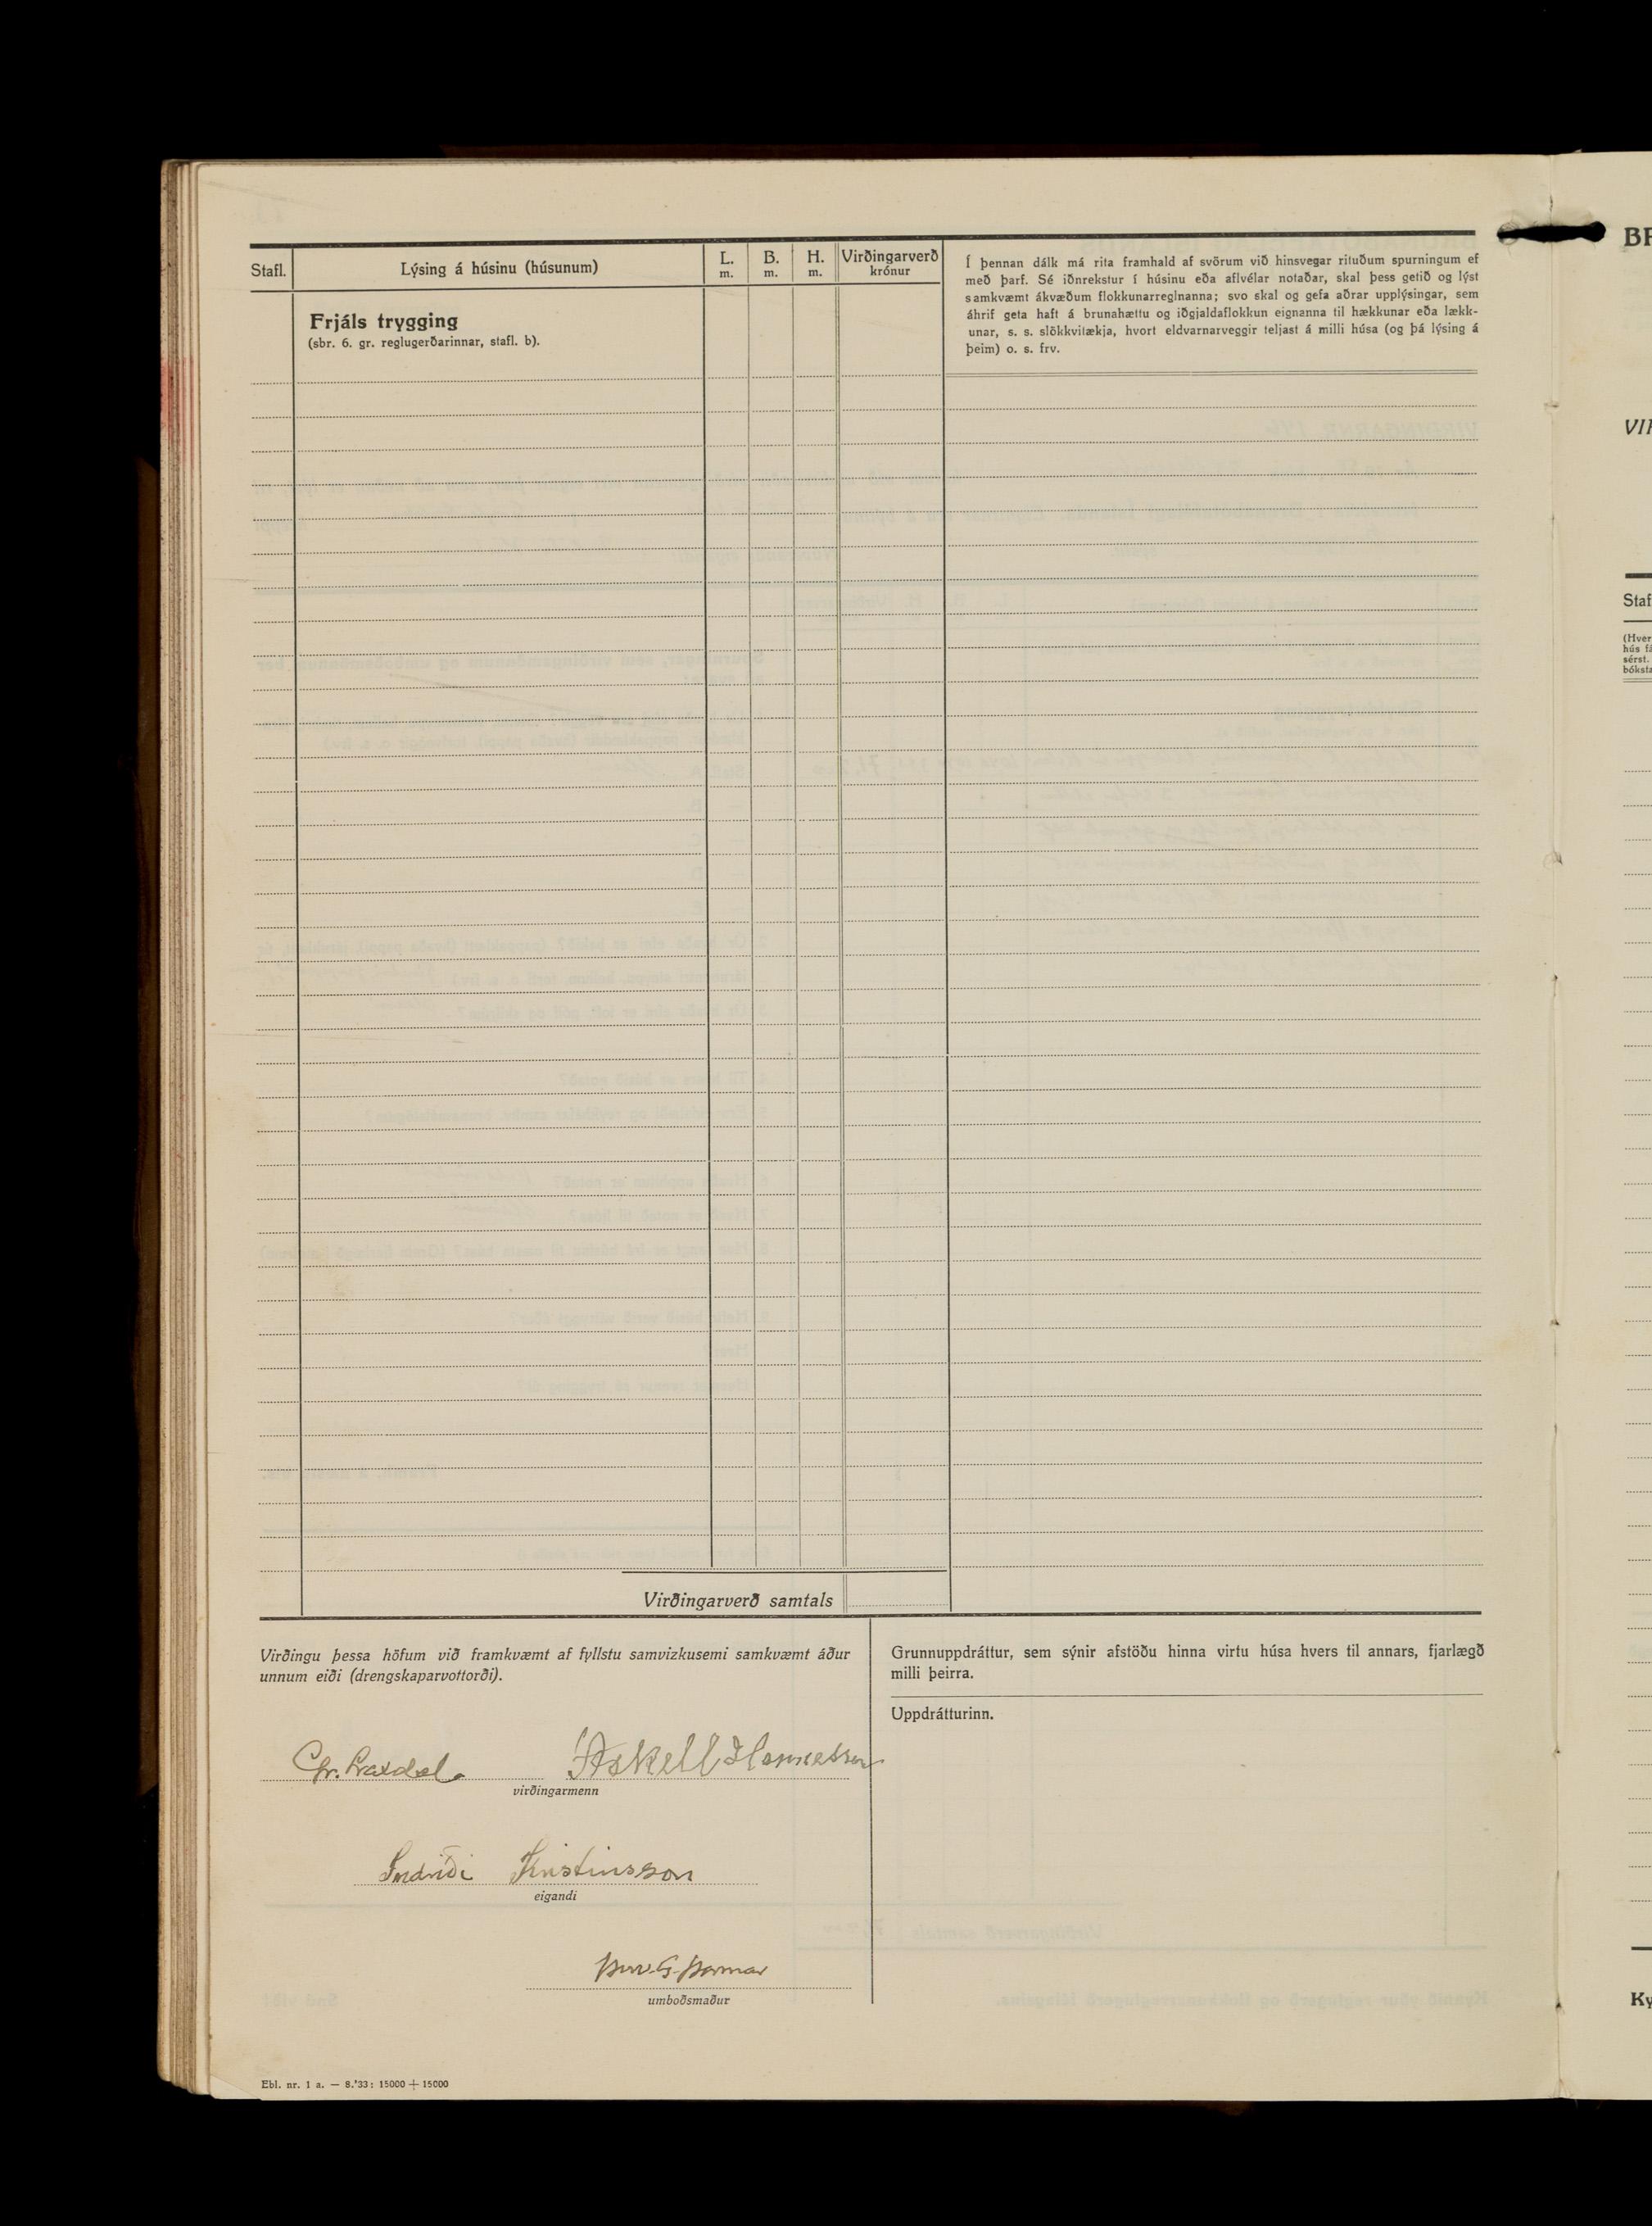 Stafl.
Lýsing á húsinu (húsunum)
L.
m.
B.
m.
H.
m.
Virðingarverð
krónur
Frjáls trygging
(sbr. 6. gr. reglugerðarinnar, stafl. b).
Í þennan dálk má rita framhald af svörum við hinsvegar rituðum spurningum ef
með þarf. Sé iðnrekstur í húsinu eða aflvélar notaðar, skal þess getið og lýst
samkvæmt ákvæðum flokkunarreglnanna; svo skal og gefa aðrar upplýsingar, sem
áhrif geta haft á brunahættu og iðgjaldaflokkun eignanna til hækkunar eða lækk-
unar, s. s. slökkvitækja, hvort eldvarnarveggir teljast á milli húsa (og þá lýsing á
þeim) o. s. frv.
Virðingarverð samtals
Virðingu þessa höfum við framkvæmt af fyllstu samvizkusemi samkvæmt áður
unnum eiði (drengskaparvottorði).
Áskell Hannesson
virðingarmenn
Indriði Kristinsson
eigandi
Þorv. G. Þormar
umboðsmaður
Grunnuppdráttur, sem sýnir afstöðu hinna virtu húsa hvers til annars, fjarlægð
milli þeirra.
Uppdrátturinn.
Ebl. nr. 1 a. — 8.'33: 15000 + 15000
BR
VIR
Staf
(Hver
hús fá
sérst.
bóksta
Ky